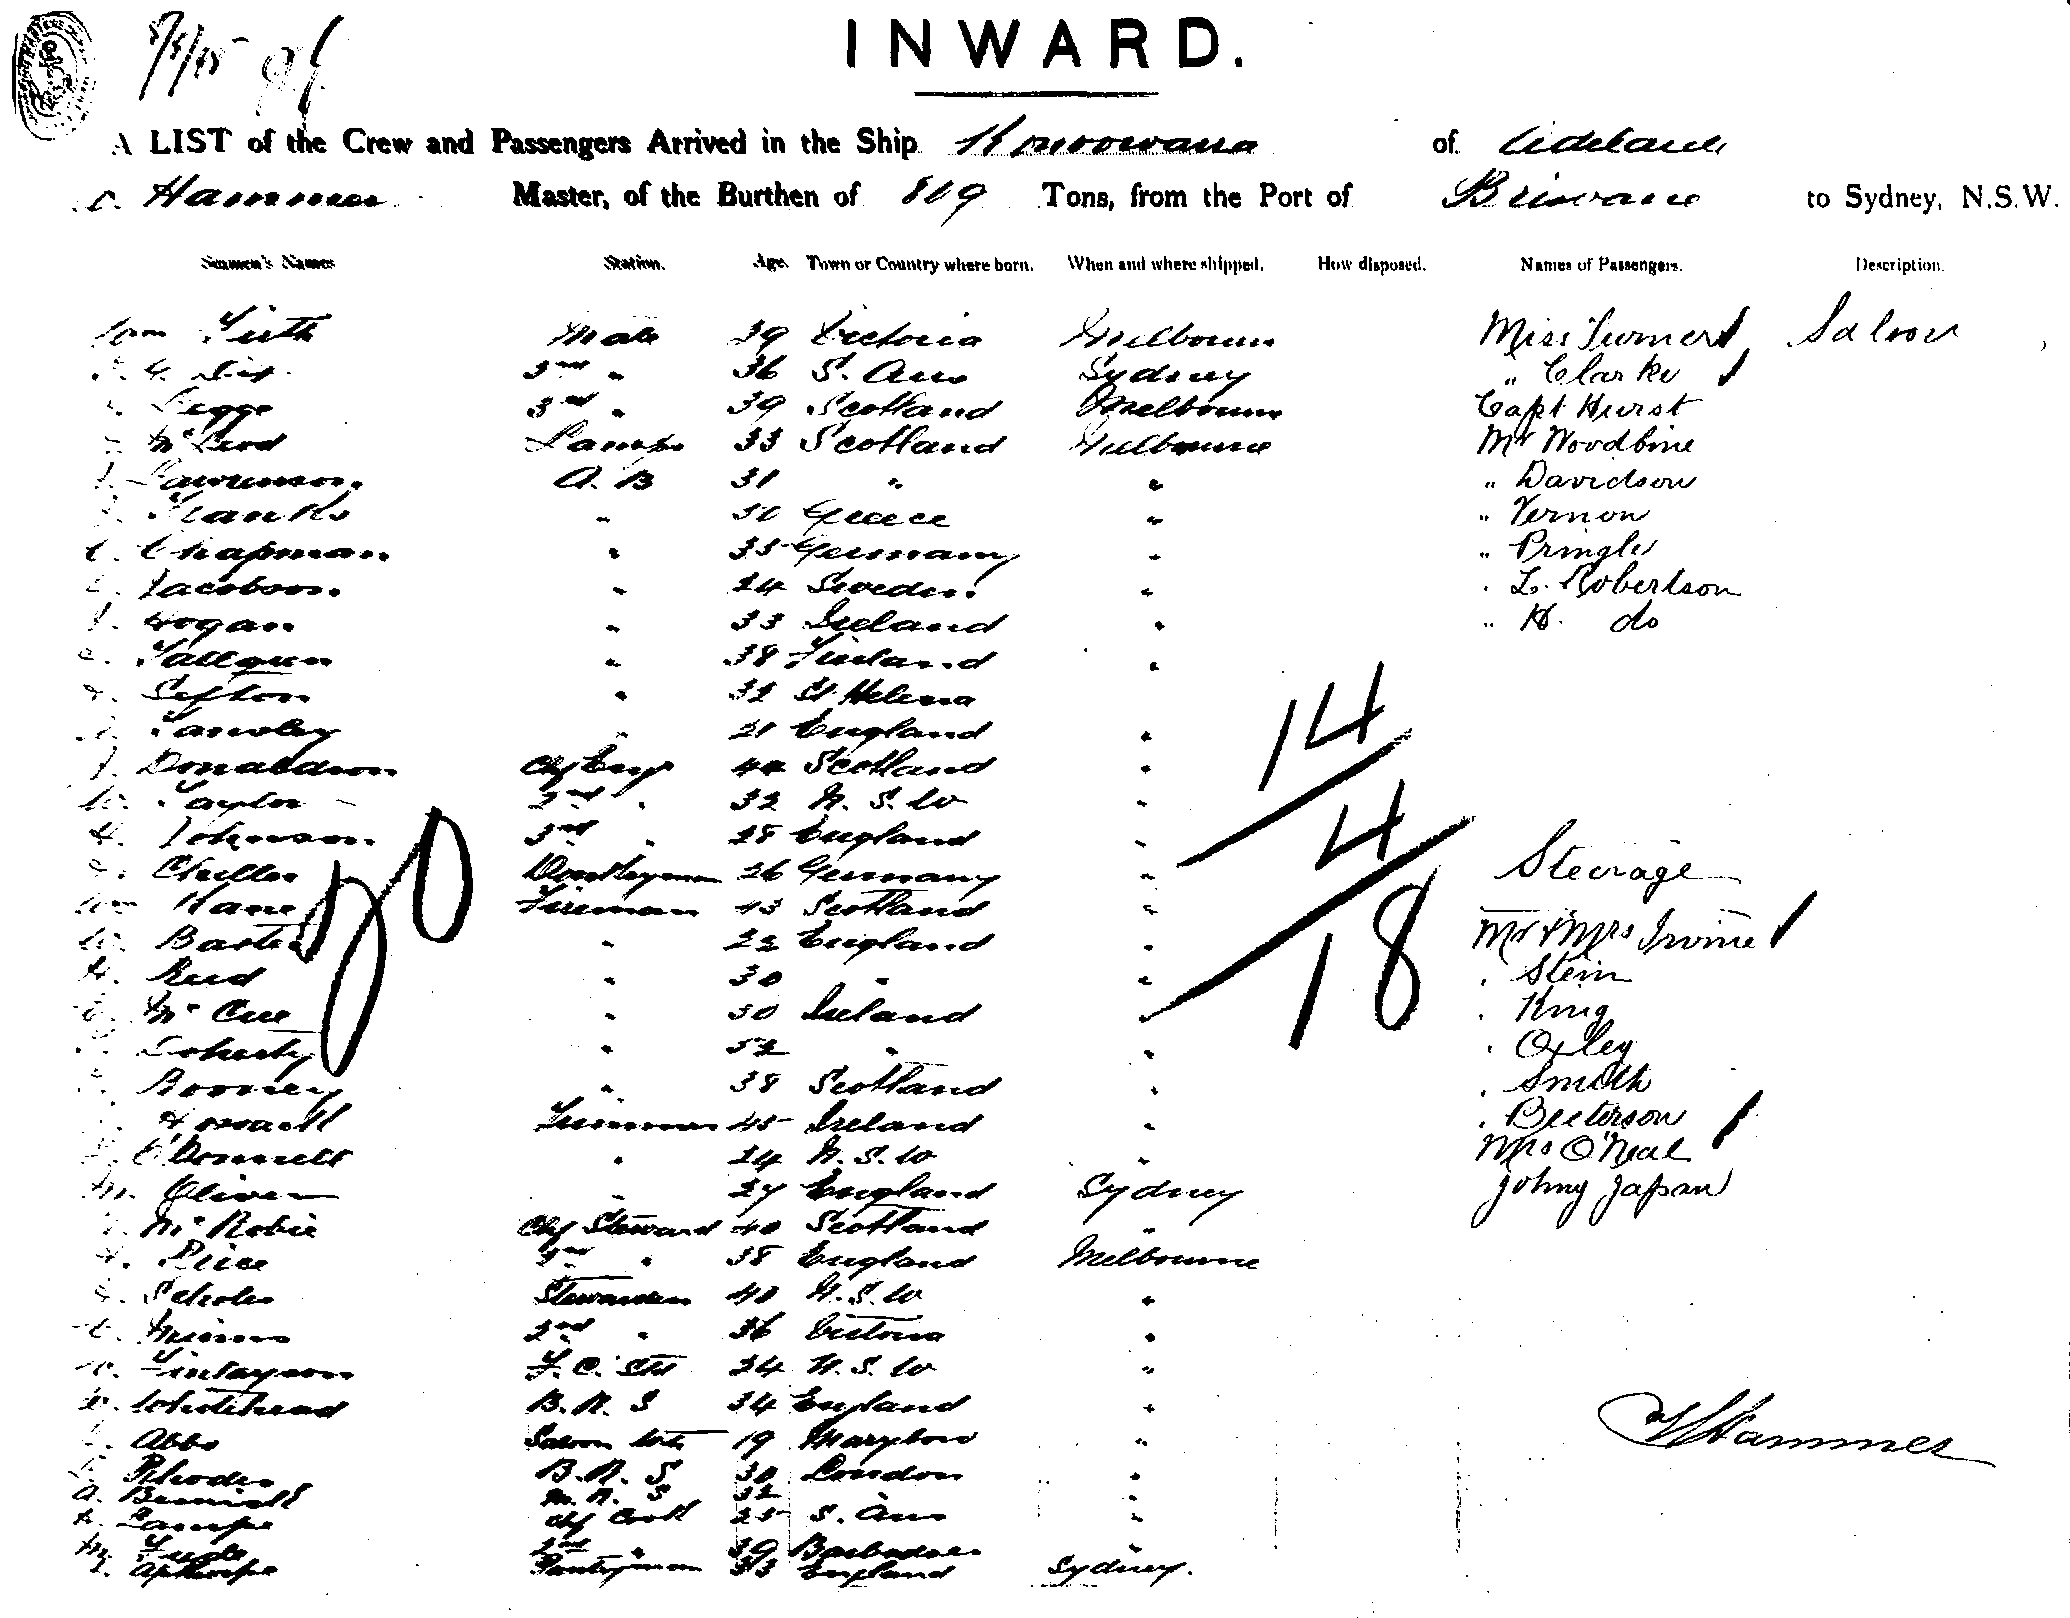 8/5/95
INWARD.
A LIST of the Crew and Passengers Arrived in the Ship Konoowarra of Adelaide
Hammer Master, of the Burthen of 819 Tons, from the Port of Brisbane to Sydney, N.S.W.
Seamen's Names Station. Age. Town or Country where born. When and where shipped. How disposed. Names of Passengers. Description.
Wm Firth Mate 39 Victoria Melbourne Miss Turner Saloon
2nd " 36 S. Aus Sydney " Clarke
Legge 3rd " 39 Scotland Melbourne Capt Hurst
McLeod Lamps 33 Scotland Melbourne Mr Woodbine
Lawrenson. A. B 31 " " " Davidson
Franks " 30 Greece " " Vernon
C. Chapman " 35 Germany " " Pringle
Jacobson. " 24 Sweden. " " L. Robertson
J. Hogan " 33 Ireland " " H. do
" 38 Finland "
Sefton " 32 St Helena
" 21 England "
14
J. Donaldson Chf Eng 44 Scotland "
W. Taylor 2nd " 32 N. S. W "
4
H. Johnson. 3rd " 28 England "
Steerage
Donkeyman 26 Germany "
Wm Kane Fireman 43 Scotland "
18
" 22 England " Mr & Mrs Irvine
H. Reid " 30 " " " Stein
McCue " 50 Ireland " " King
Doherty " 52 " " " Oxley
Rooney " 38 Scotland " " Smith
Trimmer 45 Ireland " " Beeterson
O'Donnell " 24 N. S. W " Mrs O'Neal
M. Oliver " 27 England Sydney Johny Japan
McRobie Chf Steward 40 Scotland "
Price 2nd " 38 England Melbourne
Scholes Stewardess 40 N. S. W "
2nd " 36 Victoria "
Finlayson F. C. Std 24 N. S. W "
Whitehead B. R. S 34 England "
Abbs Saloon 19 "
Hammer
Rhodes B. R. S 30 London "
A. M. R. S 32 "
Lampe Chf Cook 25 S. Aus "
2nd " 39 Barbadoes "
Apthorpe Pantryman 33 England Sydney.